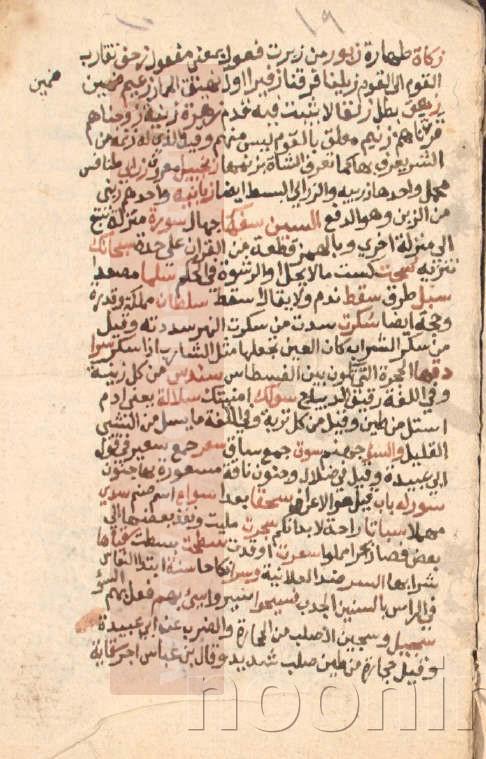 ١٩
زكاة طهارة زبور من زبرت فعول بمعنى مفعول زحفا تقارب
القوم الى القوم زيلنا فرقنا زفير اول نهيق الحمار زعيم ضمين
ضمين
زهق بطل زلقا لا يثبت فيه قدم زهرة زينة زوجناهم
قرناهم زنيم معلق بالقوم ليس منهم وقيل الذى له زنمة من
الشر يعرف بها كما تعرف الشاة بزنمتها زنجبيل معروف زرابى طنافس
مخمل واحدها زربيه والزرابى البسط ايضا زبانيه واحدهم زبنى
من الزبن وهو الدفع السين سفها جهال سورة منزلة ترتفع
الى منزلة اخرى وبالهمز قطعة من القران على حدة سبحانك
تنزيه سحت كسب ما لا يحل او الرشوة فى الحكم سلما مصعدا
سبيل طرق سقط ندم ولا يقال اسقط سلطان ملكة وقدرة
وحجة ايضا سكرت سدت من سكرت النهر سددته وقيل
من سكر الشراب كان العين تجعلها مثل الشارب اذا سكر سرا
دقها الحجرة التى تكون بين الفسطاس سندس من كل زينة
وفى اللغة رقيق الديباج سؤلك امنيتك سلالة يعنى ادم
استل من طين وقيل من كل تربة وفى اللغة ما ينسل من الشئ
القليل والسؤى جهنم سوق جمع ساق سعر جمع سعير فى قول
ابى عبيدة وقيل فى ضلال وجنون ناقة مسعورة بها جنون
سور له باب قيل هو الاعراف سحقا بعدا سواع اسم صنم سدى
مهملا سباتا راحة لابدانكم سجرت ملئت ونفذ بعضها الى
بعض فصار بحرا مملوا سعرت اوقدت سطحت بسطت
شرابها السر ضد العلانية وسرا نكاحا سنة ابتدا النعاس
فى الراس بالسنين الجدب فسيحوا سيروا سىء بهم فعل بهم
السؤ
سجيل وسجين الصلب من الحجارة والضرب عن ابى عبيدة
وقيل حجارة من طين صلب شديد وقال بن عباس اجر
noonin